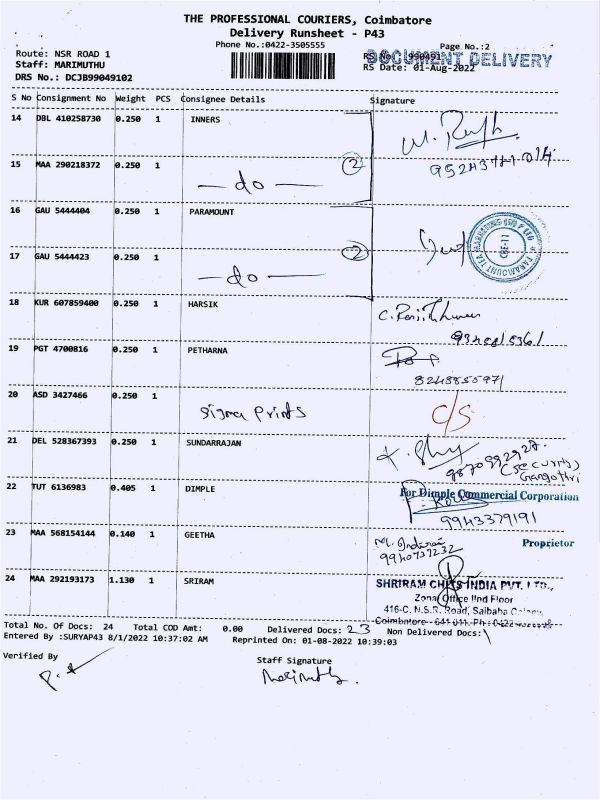 THE PROFESSIONAL COURIERS, Coimbatore
Delivery Runsheet - P43
Phone No.:0422-3505555
Page No.:2
Route: NSR ROAD 1
RS No.: 990491
DOCUMENT DELIVERY
Staff: MARIMUTHU
RS Date: 01-Aug-2022
DRS No.: DCJB99049102
S No Consignment No Weight PCS Consignee Details Signature
14 DBL 410258730 0.250 1 INNERS
15 MAA 290218372 0.250 1
— do — 2
16 GAU 5444404 0.250 1 PARAMOUNT
17 GAU 5444423 0.250 1
— do — 2
18 KUR 607859400 0.250 1 HARSIK
19 PGT 4700816 0.250 1 PETHARNA
8248855971
20 ASD 3427466 0.250 1
Sigma Prints C/S
21 DEL 528367393 0.250 1 SUNDARRAJAN
(Security)
Gangothri
22 TUT 6136983 0.405 1 DIMPLE
For Dimple Commercial Corporation
9943379191
23 MAA 568154144 0.140 1 GEETHA
Proprietor
9940737232
24 MAA 292193173 1.130 1 SRIRAM
SHRIRAM CHITS INDIA PVT. LTD.,
Zonal Office IInd Floor
416-C, N.S.R. Road, Saibaba Colony,
Coimbatore - 641 011. Ph : 0422
Total No. Of Docs: 24 Total COD Amt: 0.00 Delivered Docs: 23 Non Delivered Docs: 1
Entered By :SURYAP43 8/1/2022 10:37:02 AM Reprinted On: 01-08-2022 10:39:03
Verified By
Staff Signature
Marimuthu.